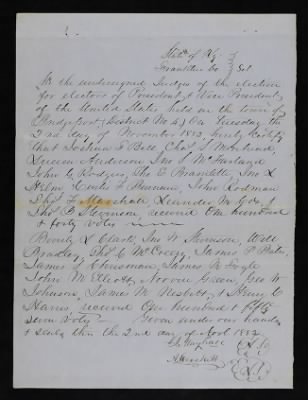 State of Ky }
Franklin Co } Sct
We the undersigned Judges of the election
for electors of President & Vice President
of the United States held in the town of
Bridgeport (District No 4) On Tuesday the
2nd day of November 1852, hereby certify
that Joshua F Bell Chas S Morehead
Lucien Anderson Jno S McFarland
John G Rodgers Tho E Bramlette Jno L
Helm Curtis F Burnam, John Rodman
Thos F Marshall Leander M Cox &
Tho B Stevenson received One hundred
& forty votes
Beverly L Clark, Jno W Stevenson, Will
Bradley, Tho C McCreery, James P Bates,
James S Chrisman, James B Fogle
John M Elliott, Norvin Green, Geo W
Johnson, James W Nesbitt, & Henry C
Harris, received One hundred & fifty
seven Votes Given under our hands
& seals this the 2nd day of Nov 1852